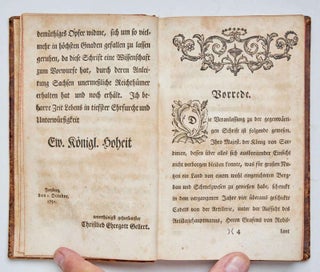 demüthiges Opfer widme, sich um so viel-
mehr in höchsten Gnaden gefallen zu lassen
geruhen, da diese Schrift eine Wissenschaft
zum Vorwurfe hat, durch deren Anlei-
tung Sachsen unermeßliche Reichthümer
erhalten hat und noch erhält. Ich be-
harre Zeit Lebens in tiefster Ehrfurcht und
Unterwürfigkeit
Ew. Königl. Hoheit
Freyberg,
den 1. October,
unterthänigst gehorsamster
Christlieb Ehregott Gellert.
Vorrede.
Die Veranlassung zu der gegenwärti-
gen Schrift ist folgende gewesen.
Ihro Majest. der König von Sar-
dinien, dessen über alles sich ausbreitender Einsicht
nicht verborgen bleiben konnte, was für großen Nu-
tzen ein Land von einem wohl eingerichteten Bergbau
und Schmelzwesen zu gewarten habe, schickte
in dem vergangenen Jahre von überaus geschickte
Cadets von der Artillerie, unter der Aufsicht des
Artilleriehauptmanns, Herrn Grafens von Robi-
)( 4
lant